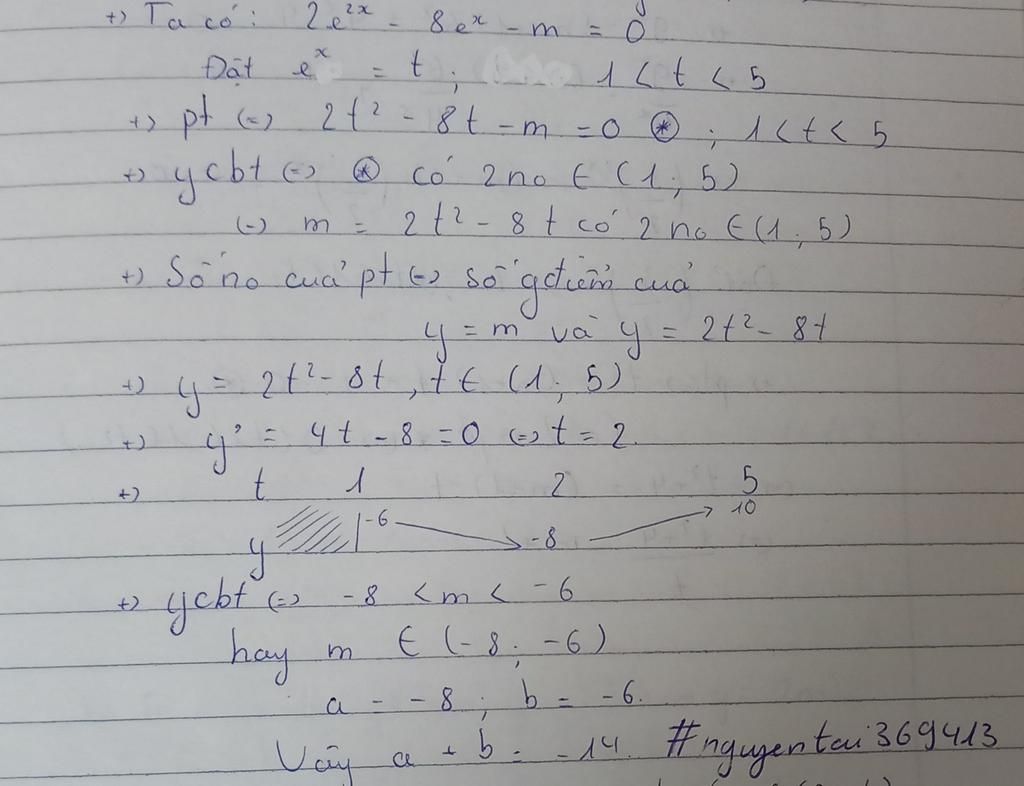 +) Ta có: 2e^2x - 8e^x - m = 0
Đặt e^x = t; 1 < t < 5
+) pt (=) 2t² - 8t - m = 0 ⊛ ; 1 < t < 5
+) ycbt (=) ⊛ có 2 no ∈ (1; 5)
(=) m = 2t² - 8t có 2 no ∈ (1; 5)
+) Số no cuả pt (=) số gđiểm cuả
y = m và y = 2t² - 8t
+) y = 2t² - 8t, t ∈ (1; 5)
+) y' = 4t - 8 = 0 (=) t = 2.
+) t 1 2 5
y -6 -8 10
+) ycbt (=) -8 < m < -6
hay m ∈ (-8; -6)
a = -8; b = -6.
Vậy a + b = -14. #nguyentai369413